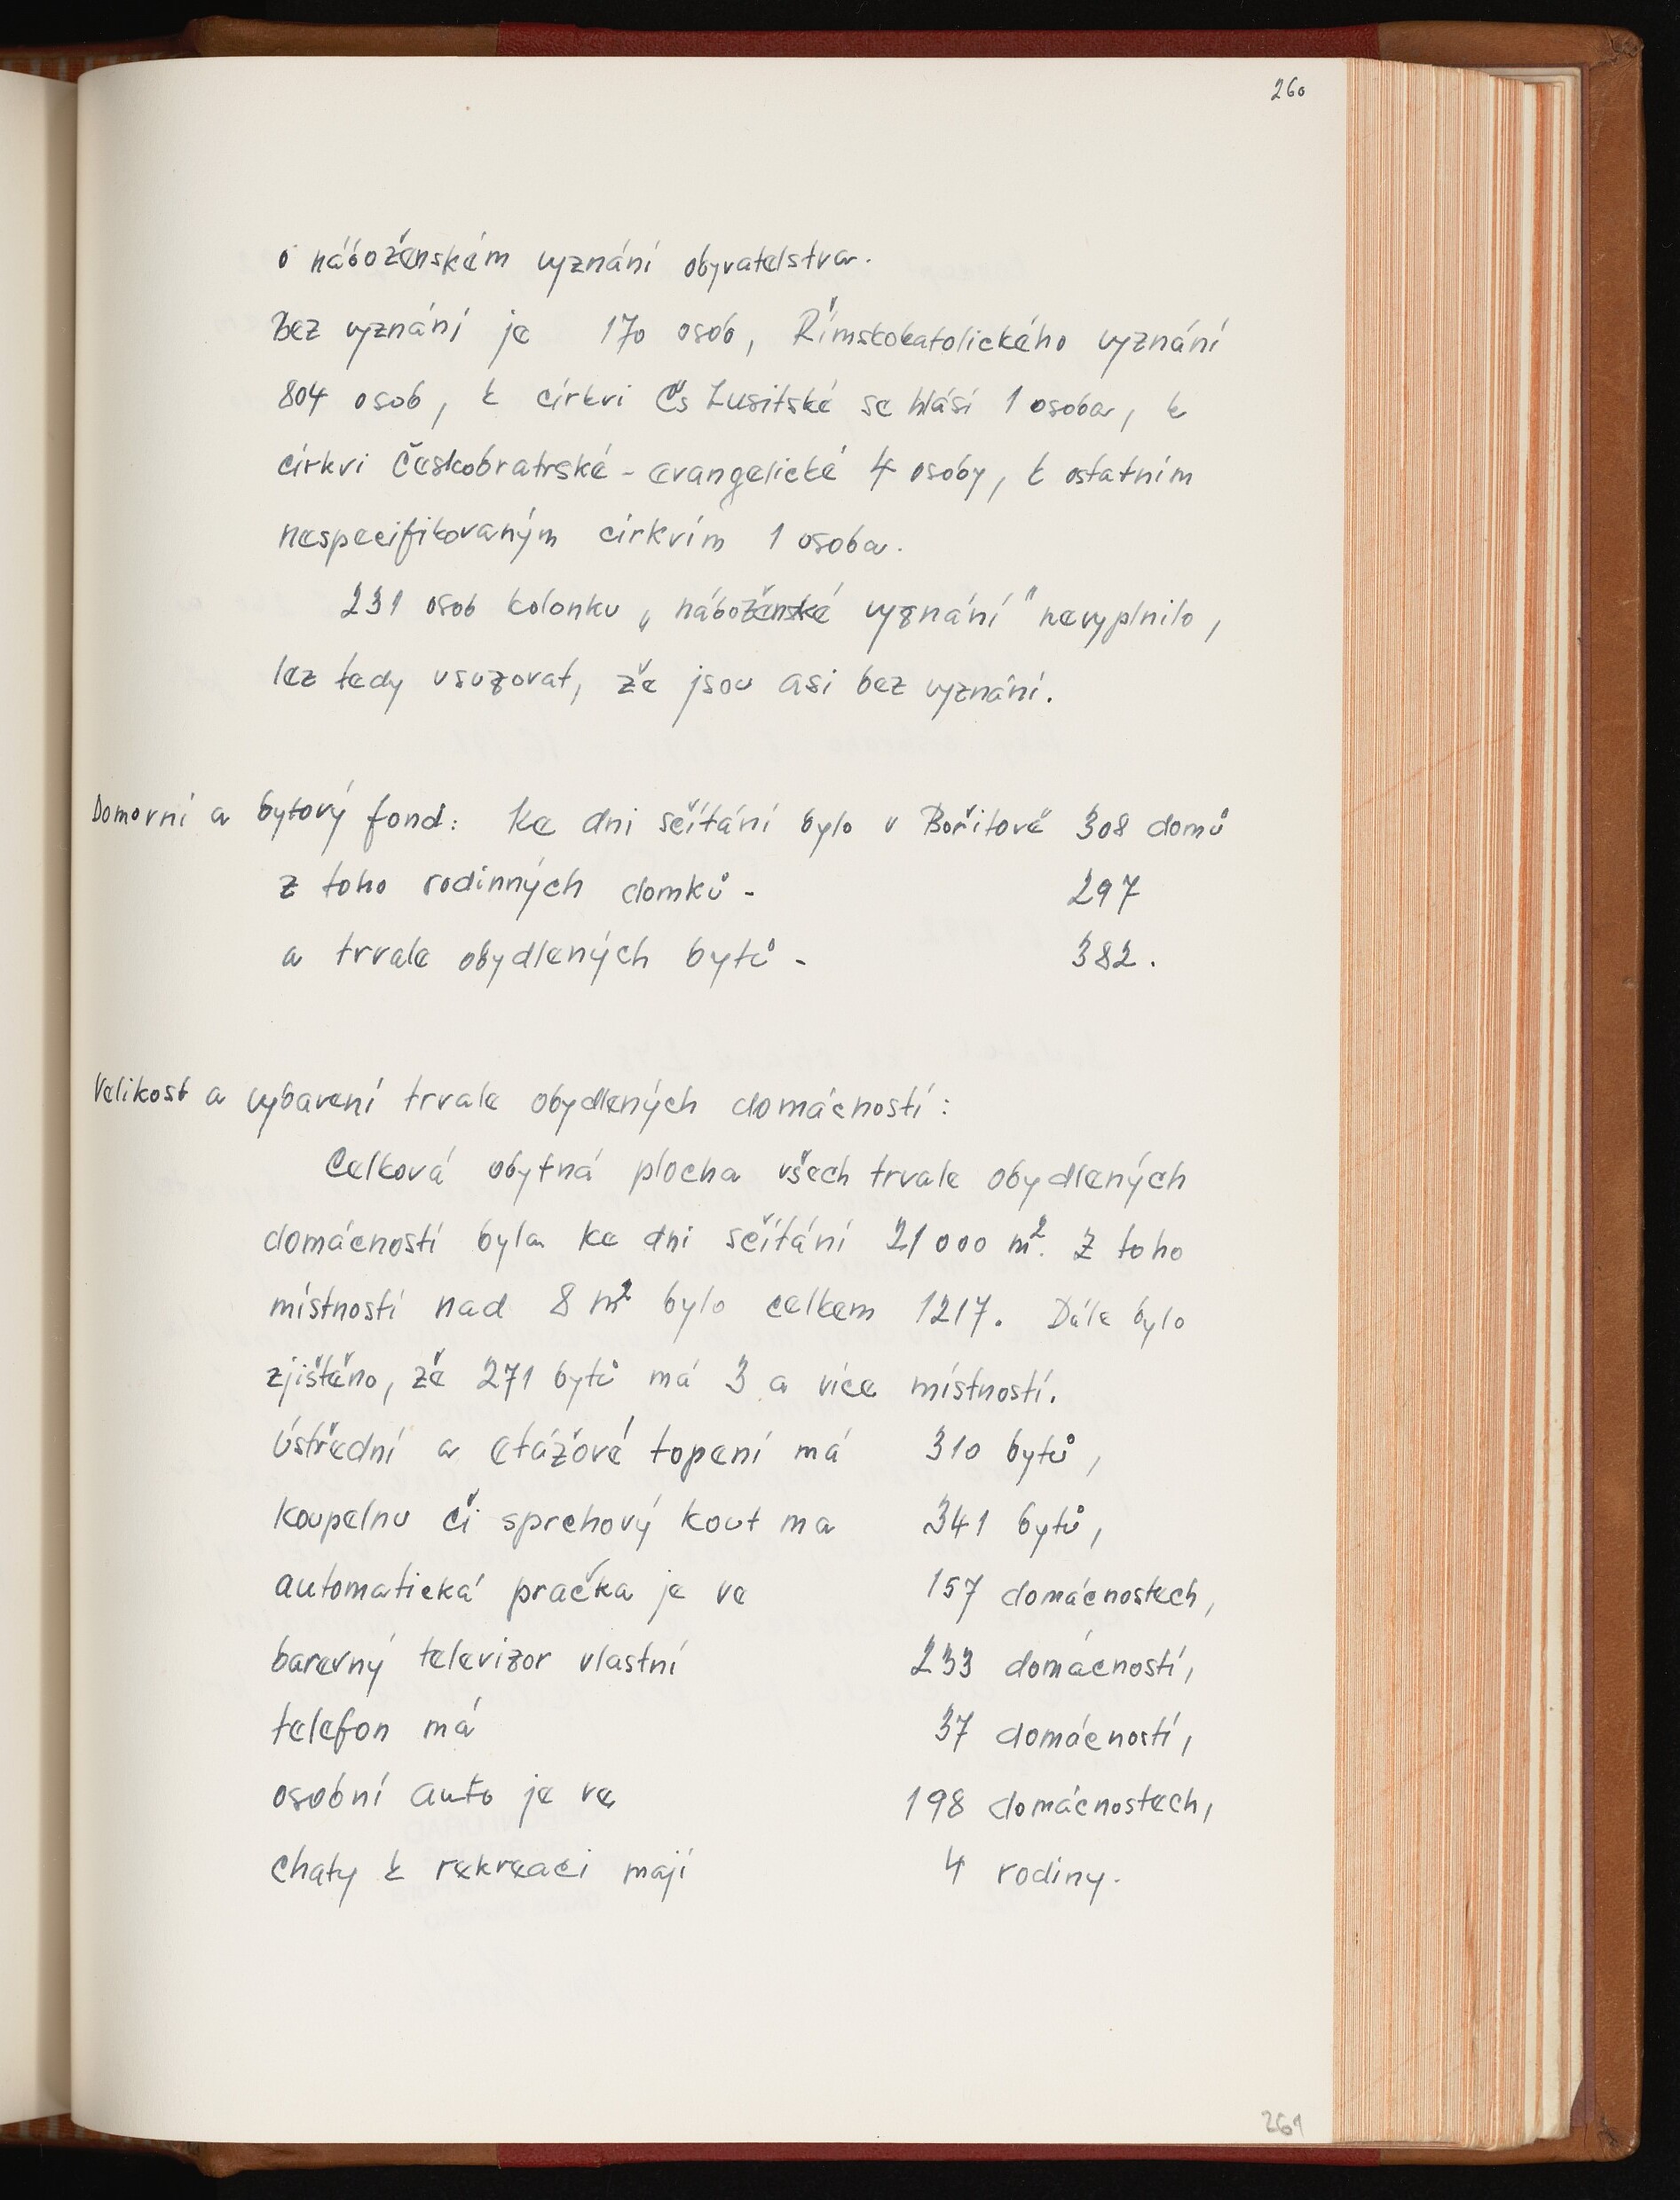 260
o náboženském vyznání obyvatelstva.
Bez vyznání je 170 osob, Římskokatolického vyznání
804 osob, k církvi Čs Husitské se hlásí 1 osoba, k
církvi Českobratrské - evangelické 4 osoby, k ostatním
nespecifikovaným církvím 1 osoba.
231 osob kolonku „náboženské vyznání" nevyplnilo,
lez tedy usuzovat, že jsou asi bez vyznání.
Domovní a bytový fond: Ke dni sčítání bylo v Bořitově 308 domů
z toho rodinných domků - 297
a trvale obydlených bytů - 382.
Velikost a vybavení trvale obydlených domácností:
Celková obytná plocha všech trvale obydlených
domácností byla ke dni sčítání 21 000 m². Z toho
místností nad 8 m² bylo celkem 1217. Dále bylo
zjištěno, že 271 bytů má 3 a více místností.
Ústřední a etážové topení má 310 bytů,
koupelnu či sprchový kout ma 341 bytů,
automatická pračka je ve 157 domácnostech,
barevný televizor vlastní 233 domácností,
telefon má 37 domácností,
osobní auto je ve 198 domácnostech,
chaty k rekreaci mají 4 rodiny.
261